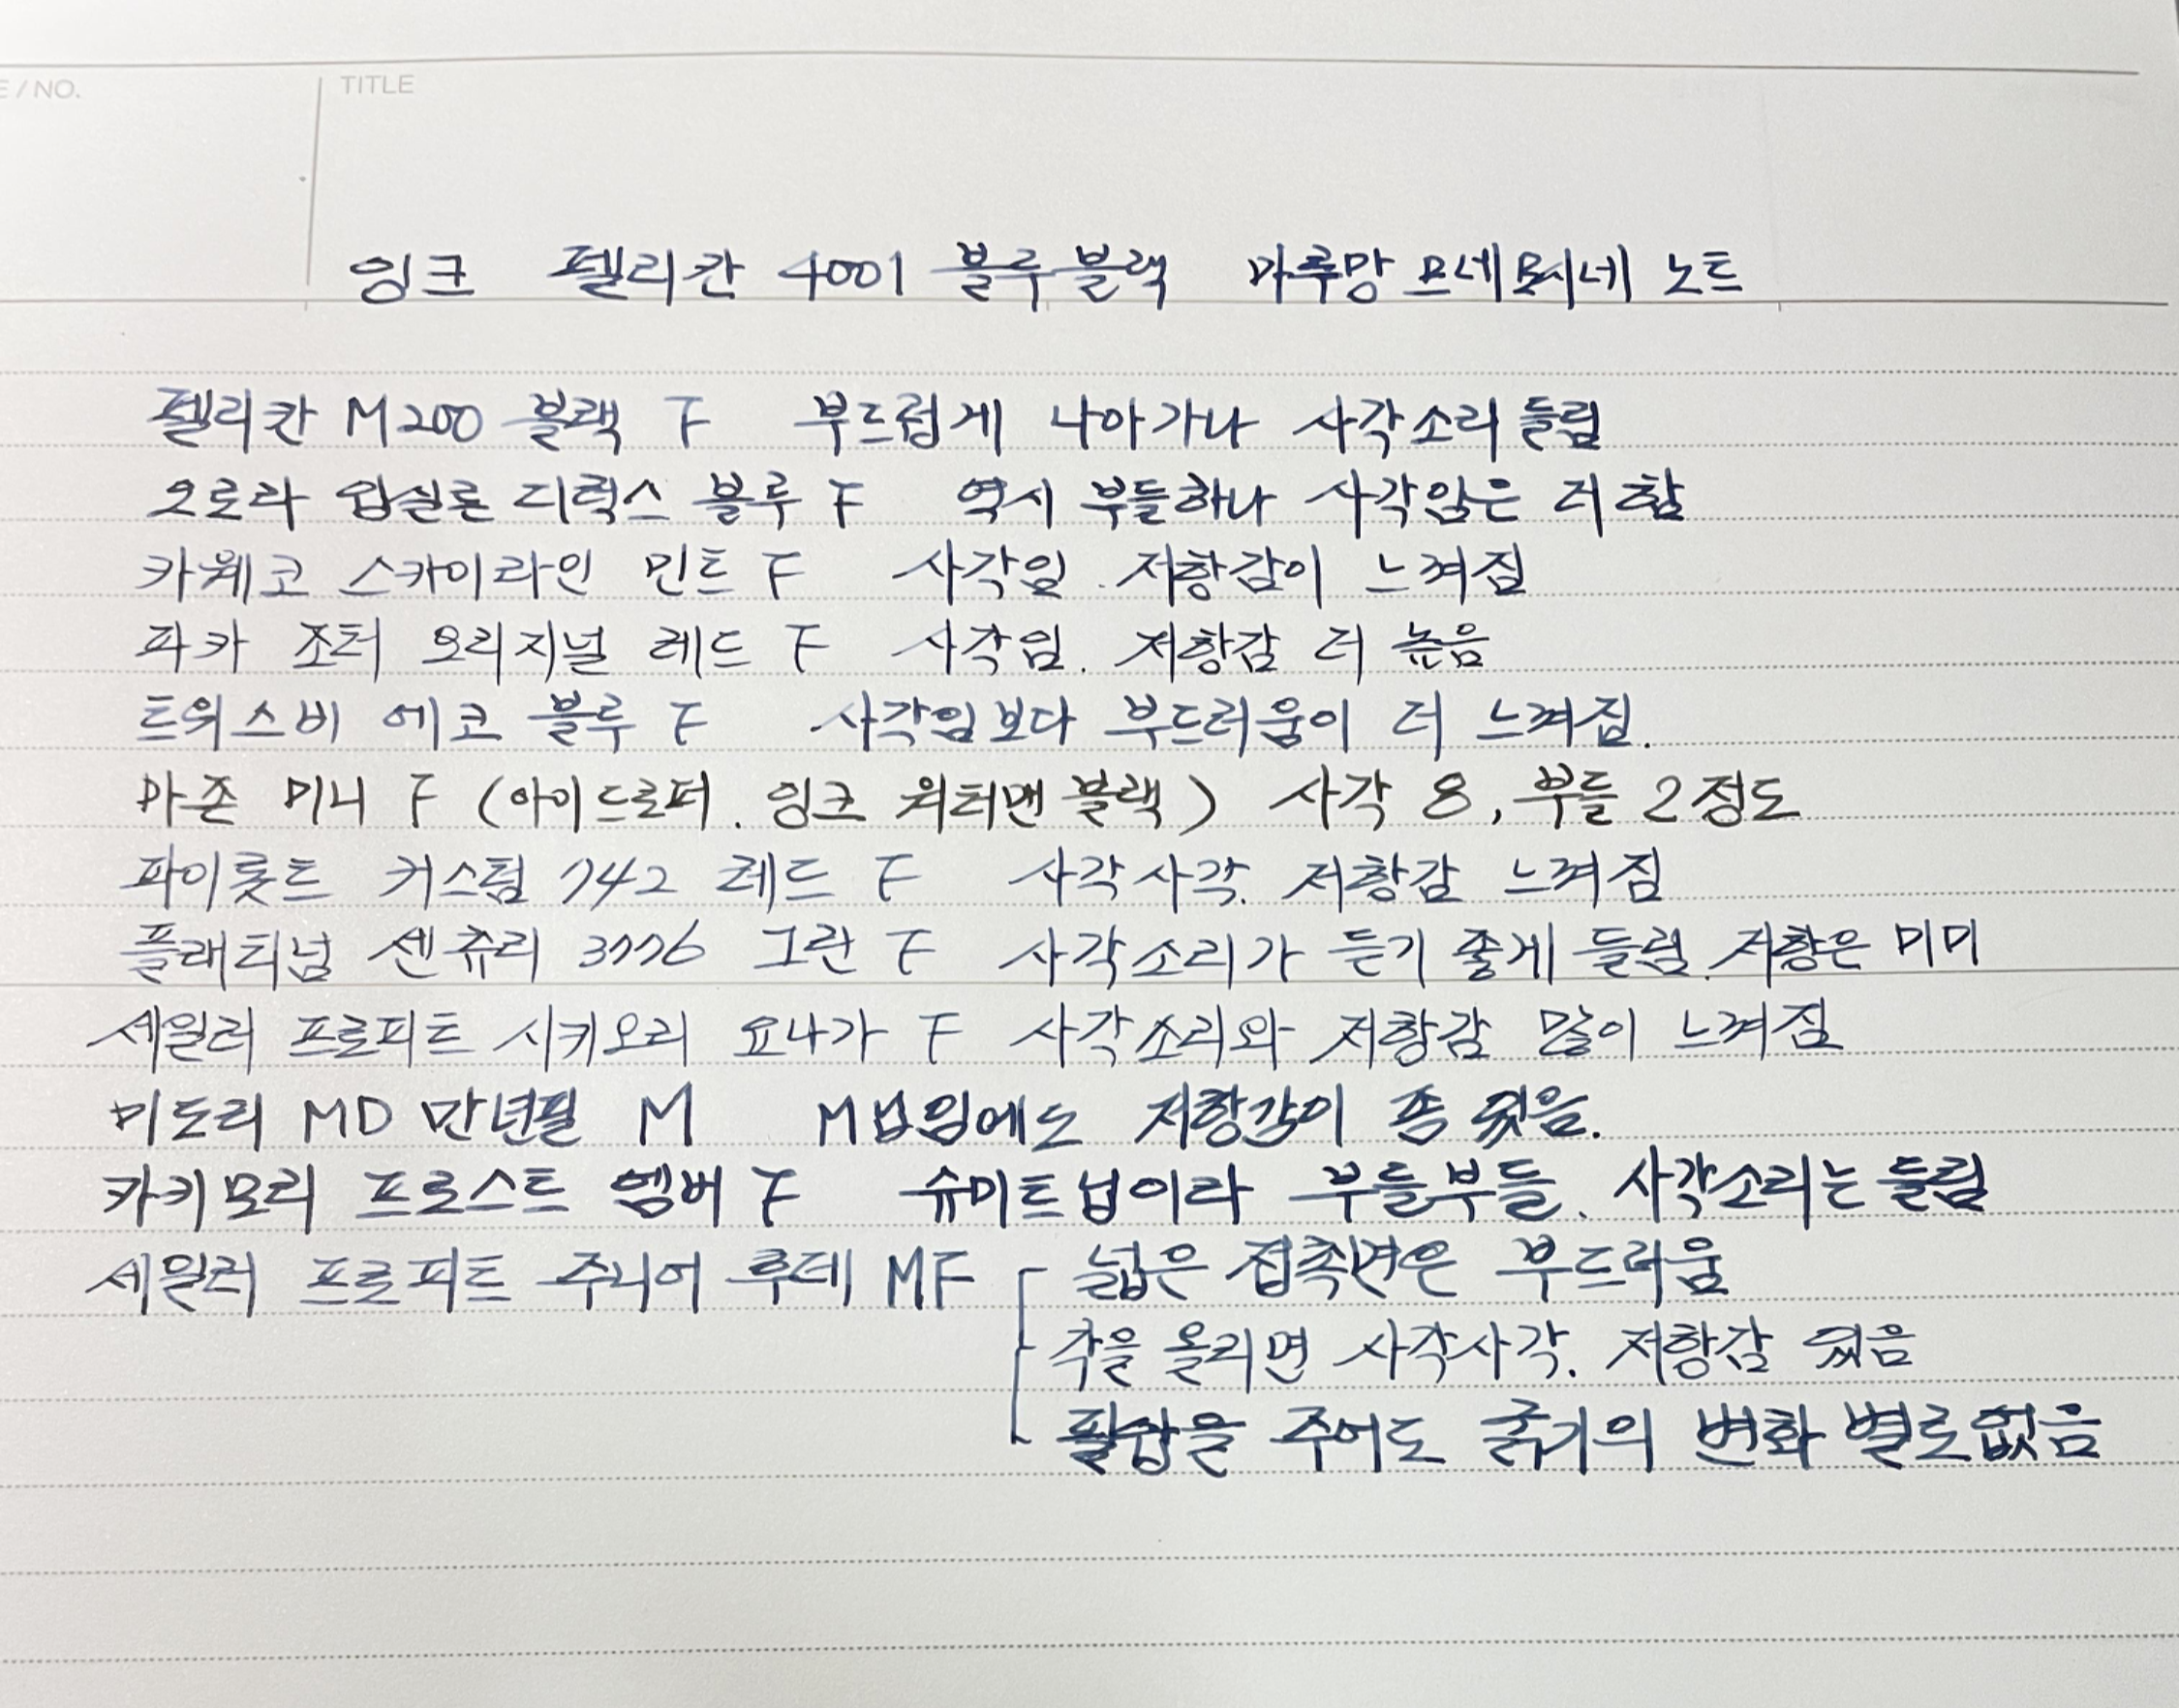 E / NO.
TITLE
잉크 펠리칸 4001 블루블랙 마루망 므네모시네 노트
펠리칸 M200 블랙 F 부드럽게 나아가나 사각소리 들림
오로라 입실론 디럭스 블루 F 역시 부들하나 사각임은 더 함
카웨코 스카이라인 민트 F 사각임. 저항감이 느껴짐
파카 조터 오리지널 레드 F 사각임. 저항감 더 높음
트위스비 에코 블루 F 사각임보다 부드러움이 더 느껴짐.
마존 미니 F (아이드로퍼. 잉크 워터맨 블랙) 사각 8, 부들 2정도
파이롯트 커스텀 742 레드 F 사각사각. 저항감 느껴짐
플래티넘 센츄리 3776 그린 F 사각소리가 듣기 좋게 들림. 저항은 미미
세일러 프로피트 시키오리 요나가 F 사각소리와 저항감 많이 느껴짐
미도리 MD 만년필 M M닙임에도 저항감이 쫌 있음.
카키모리 프로스트 엠버 F 슈미트닙이라 부들부들. 사각소리는 들림
세일러 프로피트 주니어 루데 MF 넓은 접촉면은 부드러움
각을 올리면 사각사각. 저항감 있음
필압을 주어도 굵기의 변화 별로없음